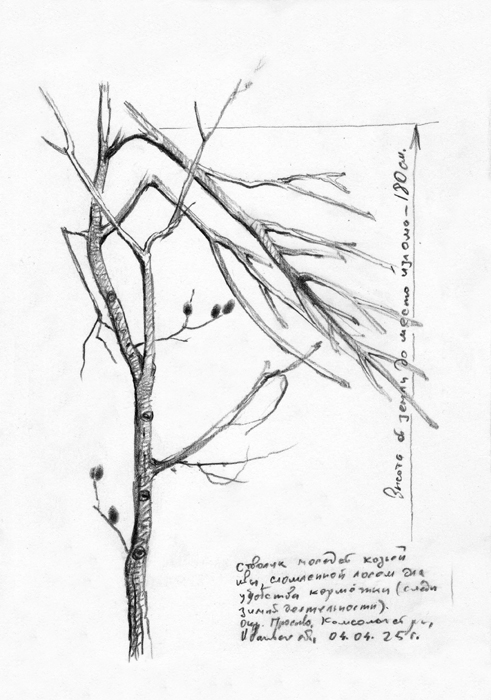 Высота от земли до места излома – 180 см.
Стволик молодой козьей
ивы, сломленной лосем для
удобства кормёжки (следы
зимней деятельности).
Окр. Комсомольск
04.04.25г.